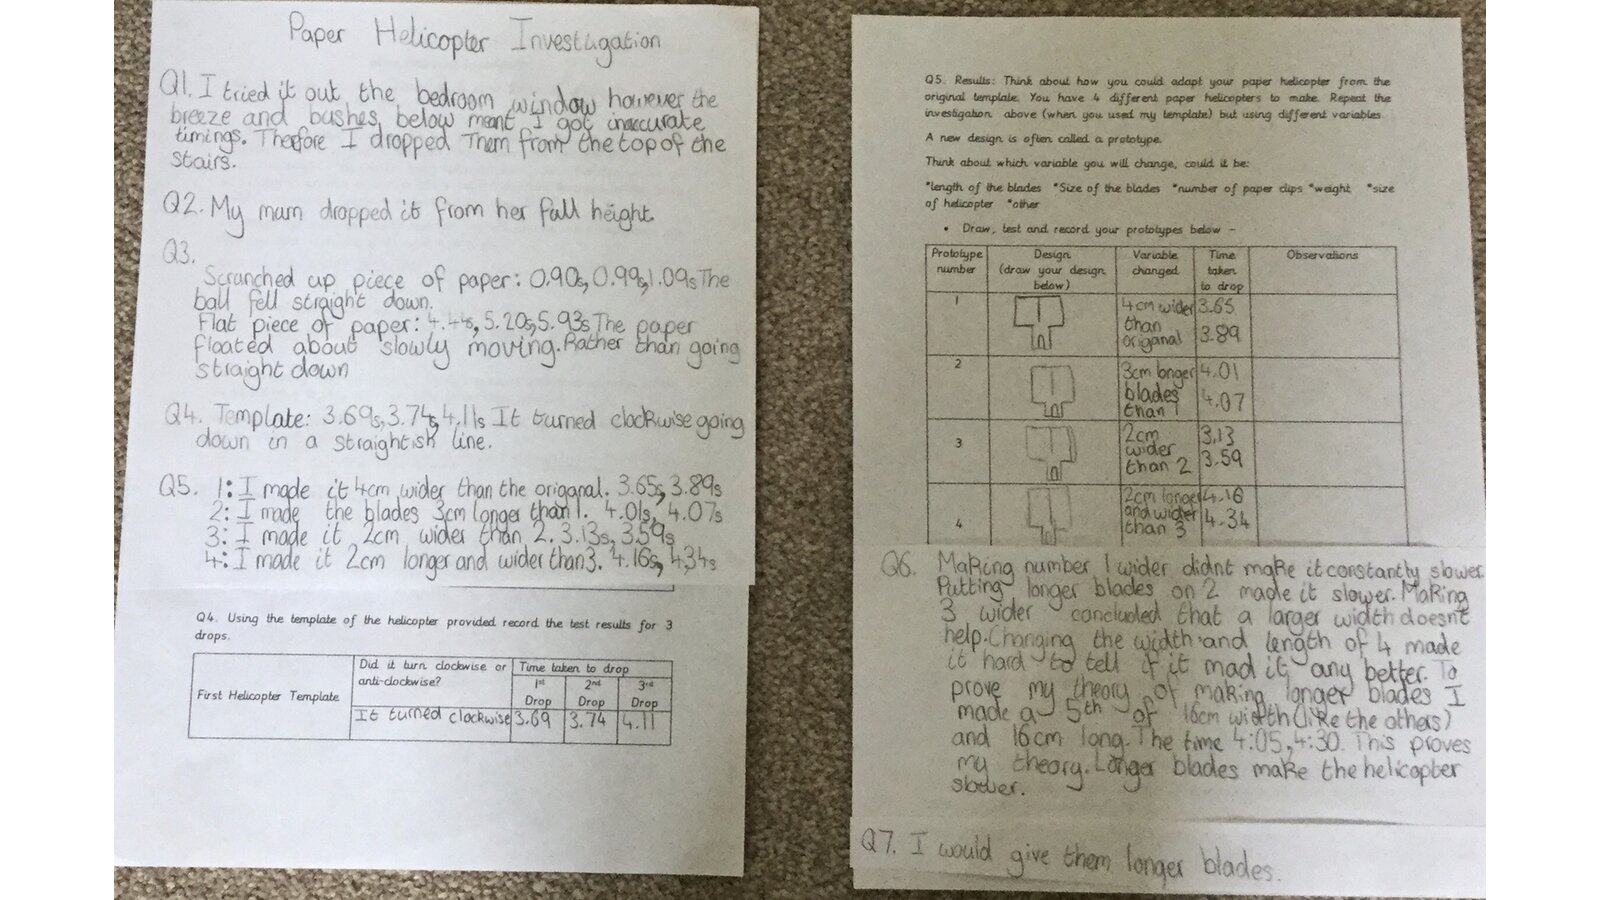 Paper Helicopter Investigation
Q1. I tried it out the bedroom window however the
breeze and bushes below meant I got inaccurate
timings. Therefore I dropped them from the top of the
stairs.
Q2. My mum dropped it from her full height.
Q3.
Scrunched up piece of paper: 0.90s, 0.99s, 1.09s The
ball fell straight down.
Flat piece of paper: 4.44s, 5.20s, 5.93s The paper
floated about slowly moving. Rather than going
straight down
Q4. Template: 3.69s, 3.74s, 4.11s It turned clockwise going
down in a straightish line.
Q5. 1: I made it 4cm wider than the origanal. 3.65s, 3.89s
2: I made the blades 3cm longer than 1. 4.01s, 4.07s
3: I made it 2cm wider than 2. 3.13s, 3.59s
4: I made it 2cm longer and wider than 3. 4.16s, 4.34s
Q4. Using the template of the helicopter provided record the test results for 3
drops.
First Helicopter Template
Did it turn clockwise or
anti-clockwise?
Time taken to drop
1st Drop 2nd Drop 3rd Drop
It turned clockwise 3.69 3.74 4.11
Q5. Results: Think about how you could adapt your paper helicopter from the
original template. You have 4 different paper helicopters to make. Repeat the
investigation above (when you used my template) but using different variables.
A new design is often called a prototype.
Think about which variable you will change, could it be:
*length of the blades *Size of the blades *number of paper clips *weight *size
of helicopter *other
• Draw, test and record your prototypes below –
Prototype number
Design (draw your design below)
Variable changed
Time taken to drop
Observations
1 4cm wider than origanal 3.65 3.89
2 3cm longer blades than 1 4.01 4.07
3 2cm wider than 2 3.13 3.59
4 2cm longer and wider than 3 4.16 4.34
Q6. Making number 1 wider didnt make it constantly slower.
Putting longer blades on 2 made it slower. Making
3 wider concluded that a larger width doesnt
help. Changing the width and length of 4 made
it hard to tell if it mad it any better. To
prove my theory of making longer blades I
made a 5th of 16cm width (like the others)
and 16cm long. The time 4:05, 4:30. This proves
my theory. Longer blades make the helicopter
slower.
Q7. I would give them longer blades.